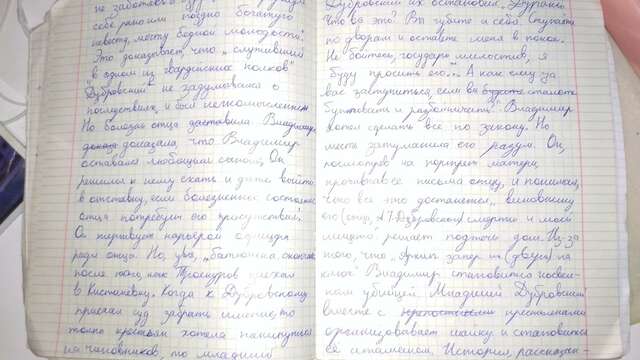 не заботясь о
себе рано или поздно богатую
невесту, мечту бедной молодости".
Это доказывает, что „служивший
в одном из гвардейских полков"
Дубровский не задумывался о
последствиях, и был легкомысленным.
Но болезнь отца заставила Владимира
доказала, что Владимир
оставался любящим сыном. Он
решил к нему ехать и даже выйти
в отставку, если болезненное состояние
отца потребует его присутствия.
Он жертвует карьерой офицера
ради отца. Но, увы, „батюшка скончался
после того, как Троекуров приехал
в Кистенёвку. Когда к Дубровскому
приехал суд забрать имение, то
толпа крестьян хотела накинуться
на чиновников, но младший
Дубровский их остановил. „Дураки!
Что вы это? Вы губите и себя
по дворам и оставьте меня в покое.
Не бойтесь, государь милостив, я
буду просить его... А как ему за
вас заступиться, если вы будете станете
бунтовать и разбойничать". Владимир
хотел сделать все по закону. Но
месть затуманила его разум. Он,
посмотрев на портрет матери,
прочитав её письма отцу, и понимая,
что все это достанется „виновнику
его (отца, А.Г. Дубровского) смерти и моей
нищеты" решает поджечь дом. Из-за
того, что „Архип запер их (двери) на
ключ" Владимир становится косвен-
ным убийцей. Младший Дубровский
вместе с крестьянами
организовывает шайку и становится
её атаманом. История рассказы-